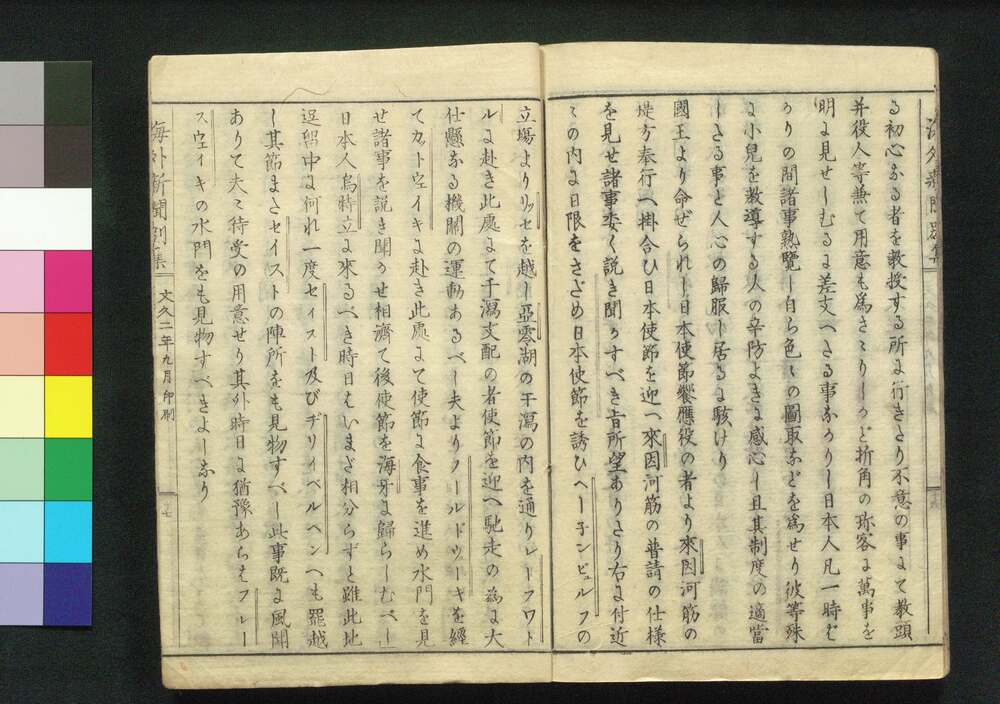 る初心なる者を教授する所に行きたり不意の事にて教頭
并役人等兼て用意も為さゞりしかど折角の珎客に萬事を
明に見せしむるに差支へたる事なかりし日本人凡一時ば
かりの間諸事熟覽し自ら色〻の圖取などを為せり彼等殊
に小兒を教導する人の辛防よきに感心し且其制度の適當
したる事と人心の歸服し居るに駭けり
國王より命ぜられし日本使節饗應役の者より來因河筋の
堤方奉行へ掛合ひ日本使節を迎へ來因河筋の普請の仕様
を見せ諸事委く説き聞かすべき旨所望ありたり右に付近
〻の内に日限をさだめ日本使節を誘ひへー子ンビュルフの
立場よりリッセを越し亞零湖の干瀉の内を通りレーフワト
ルに赴き此處にて干瀉支配の者使節を迎へ馳走の為に大
仕懸なる機關の運動あるべし夫よりフールドウーキを經
てカットウェイキに赴き此處にて使節に食事を進め水門を見
せ諸事を説き聞かせ相濟て後使節を海牙に歸らしむべし
日本人烏時立に來るべき時日はいまだ相分らずと雖此地
逗留中に何れ一度セイスト及びヂリイベルヘンへも罷越
し其節またセイストの陣所をも見物すべし此事既に風聞
ありて夫〻待受の用意せり其外時日に猶豫あらばフレー
スウェイキの水門をも見物すべきよしなり
海外新聞別集
文久二年九月印刷